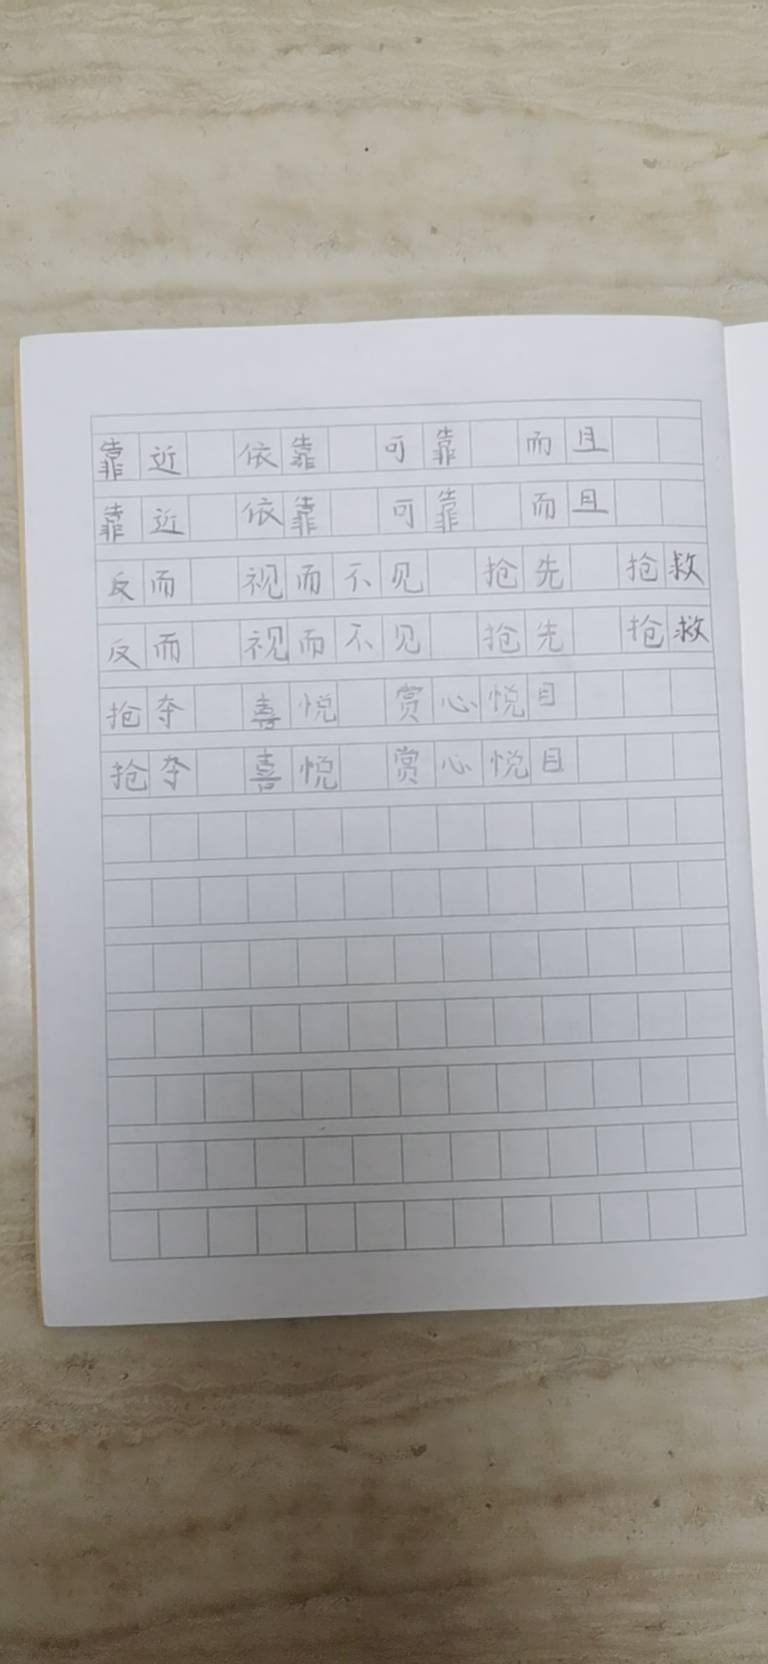 靠近 依靠 可靠 而且
靠近 依靠 可靠 而且
反而 视而不见 抢先 抢救
反而 视而不见 抢先 抢救
抢夺 喜悦 赏心悦目
抢夺 喜悦 赏心悦目